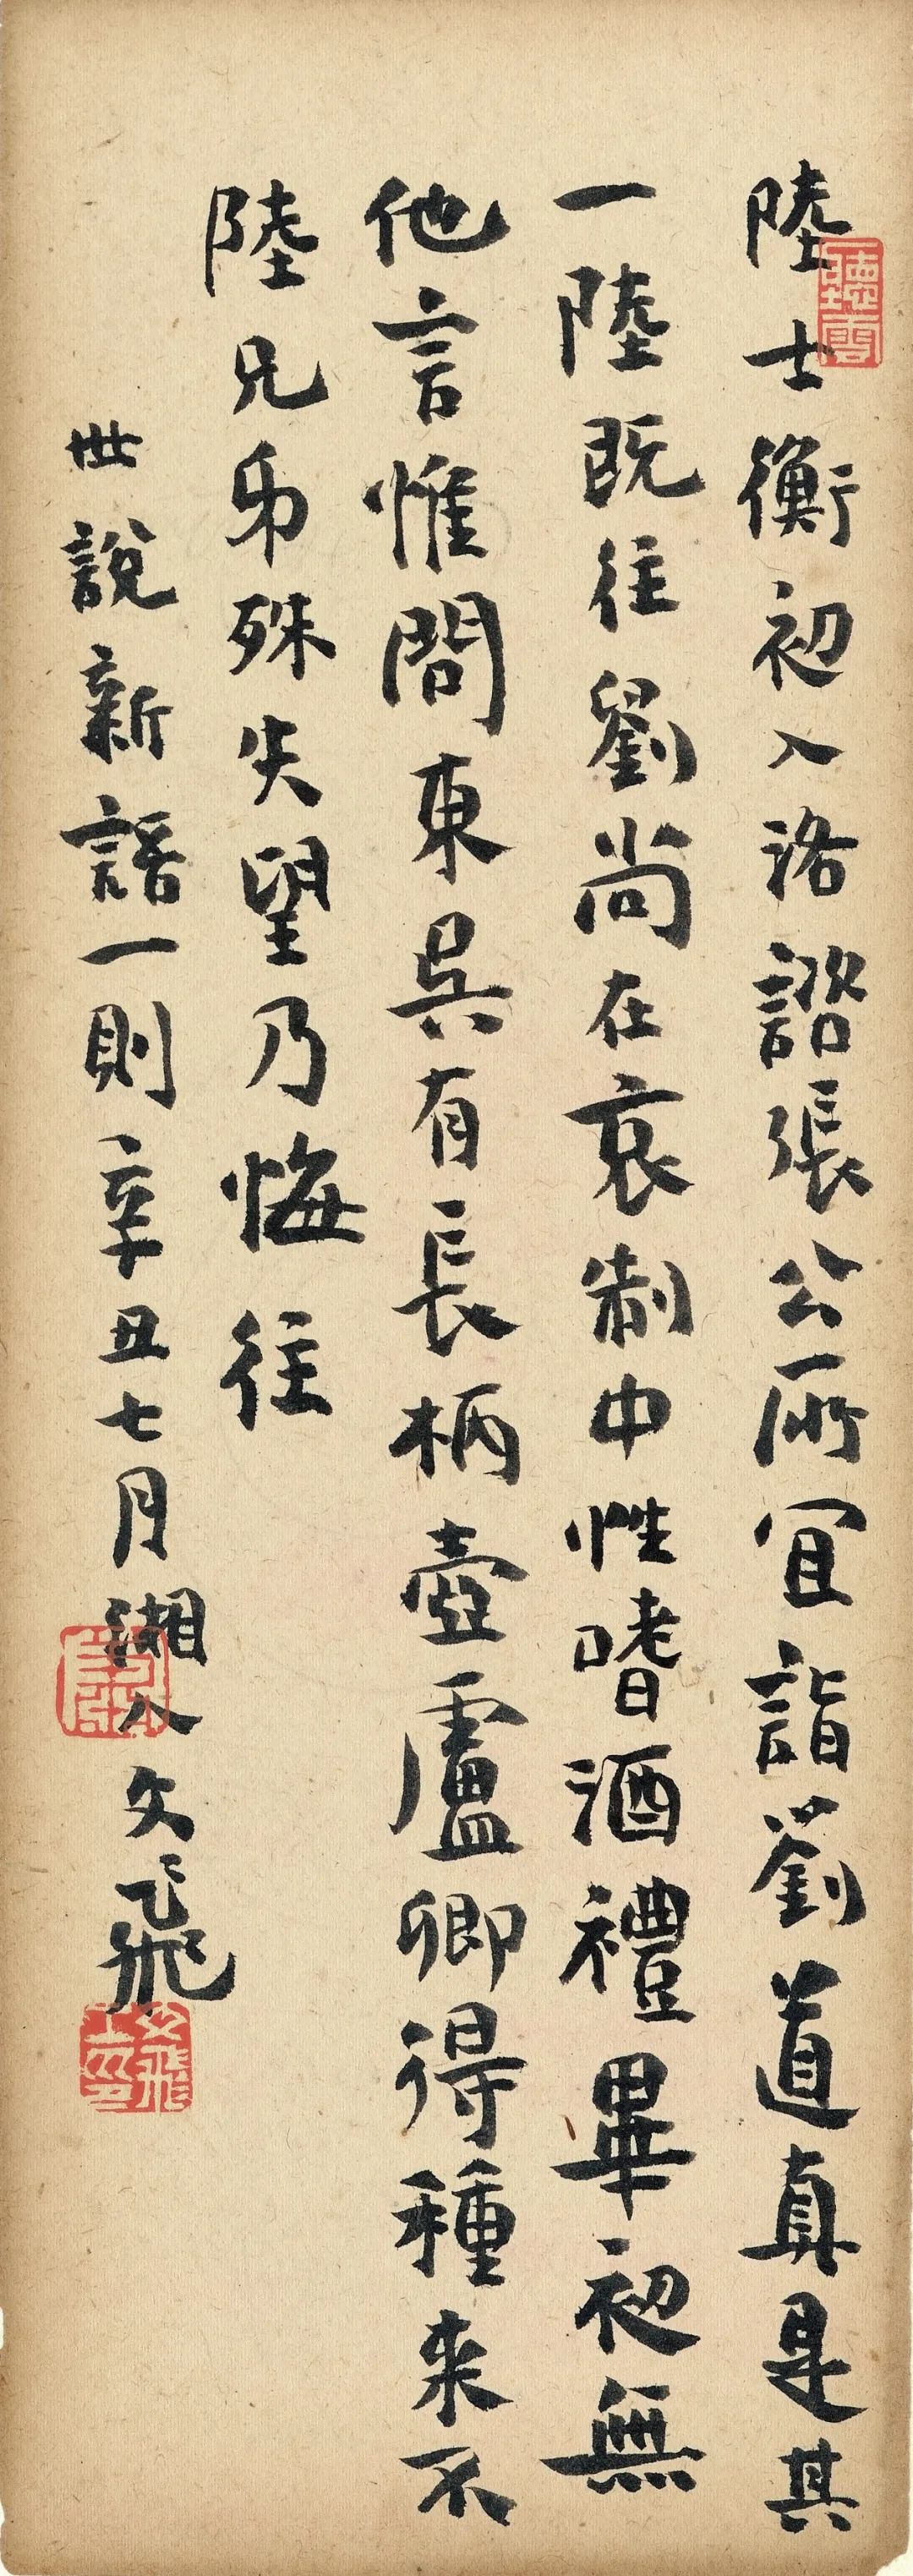 陸士衡初入洛諮張公所宜詣劉道真是其
一陸既往劉尚在哀制中性嗜酒禮畢初無
他言惟問東吳有長柄壺盧卿得種来不
陸兄弟殊失望乃悔往
世說新語一則辛丑七月湘人文飛
聽雲